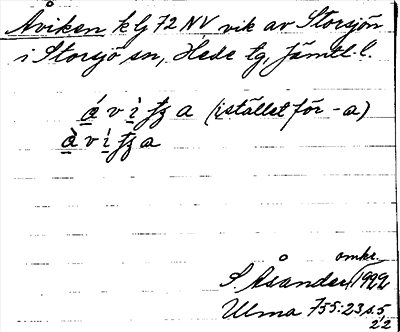 Åviken kbl 72 NV vik av Storsjön
i Storsjö sn, Hede tg, Jämtl. l.
å v i ʒ a (istället för -a)
å v i ʒ a
omkr.
S. Åsander 1922
Ulma 755:23 s. 5,
22